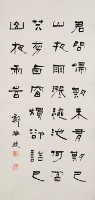 君問歸期未有期巴
山夜雨漲秋池何當
共翦西窗燭卻話巴
山夜雨時